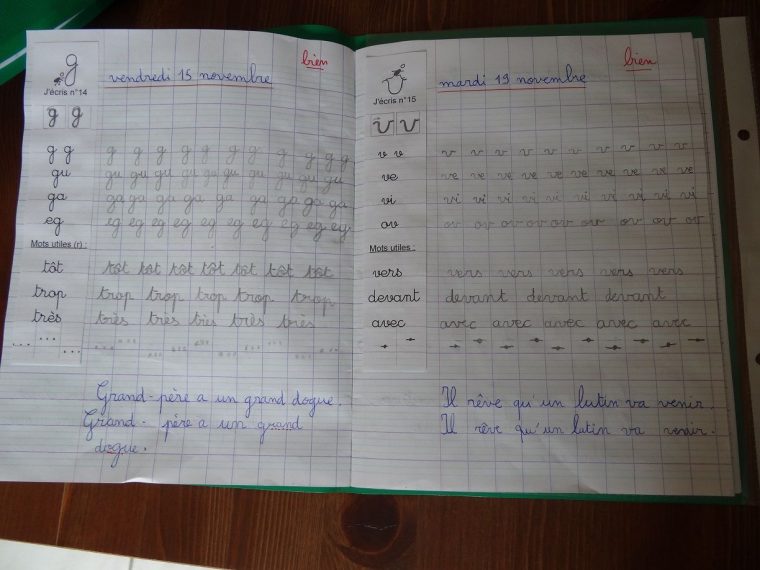 g
bien
vendredi 15 novembre
J'écris n°14
g g
g g g g g g g g g g g g
gu gu gu gu gu gu gu gu gu gu gu
ga ga ga ga ga ga ga ga ga ga
eg eg eg eg eg eg eg eg eg eg eg
Mots utiles (r) :
tôt tôt tôt tôt tôt tôt tôt tôt
trop trop trop trop trop trop
très très très très très très
Grand-père a un grand dogue.
Grand-père a un grand
dogue.
bien
mardi 19 novembre
J'écris n°15
v v
v v v v v v v v v v v v
ve ve ve ve ve ve ve ve ve ve ve
vi vi vi vi vi vi vi vi vi vi vi
ov ov ov ov ov ov ov ov ov ov
Mots utiles :
vers vers vers vers vers vers
devant devant devant devant
avec avec avec avec avec avec
Il rêve qu'un lutin va venir.
Il rêve qu'un lutin va venir.